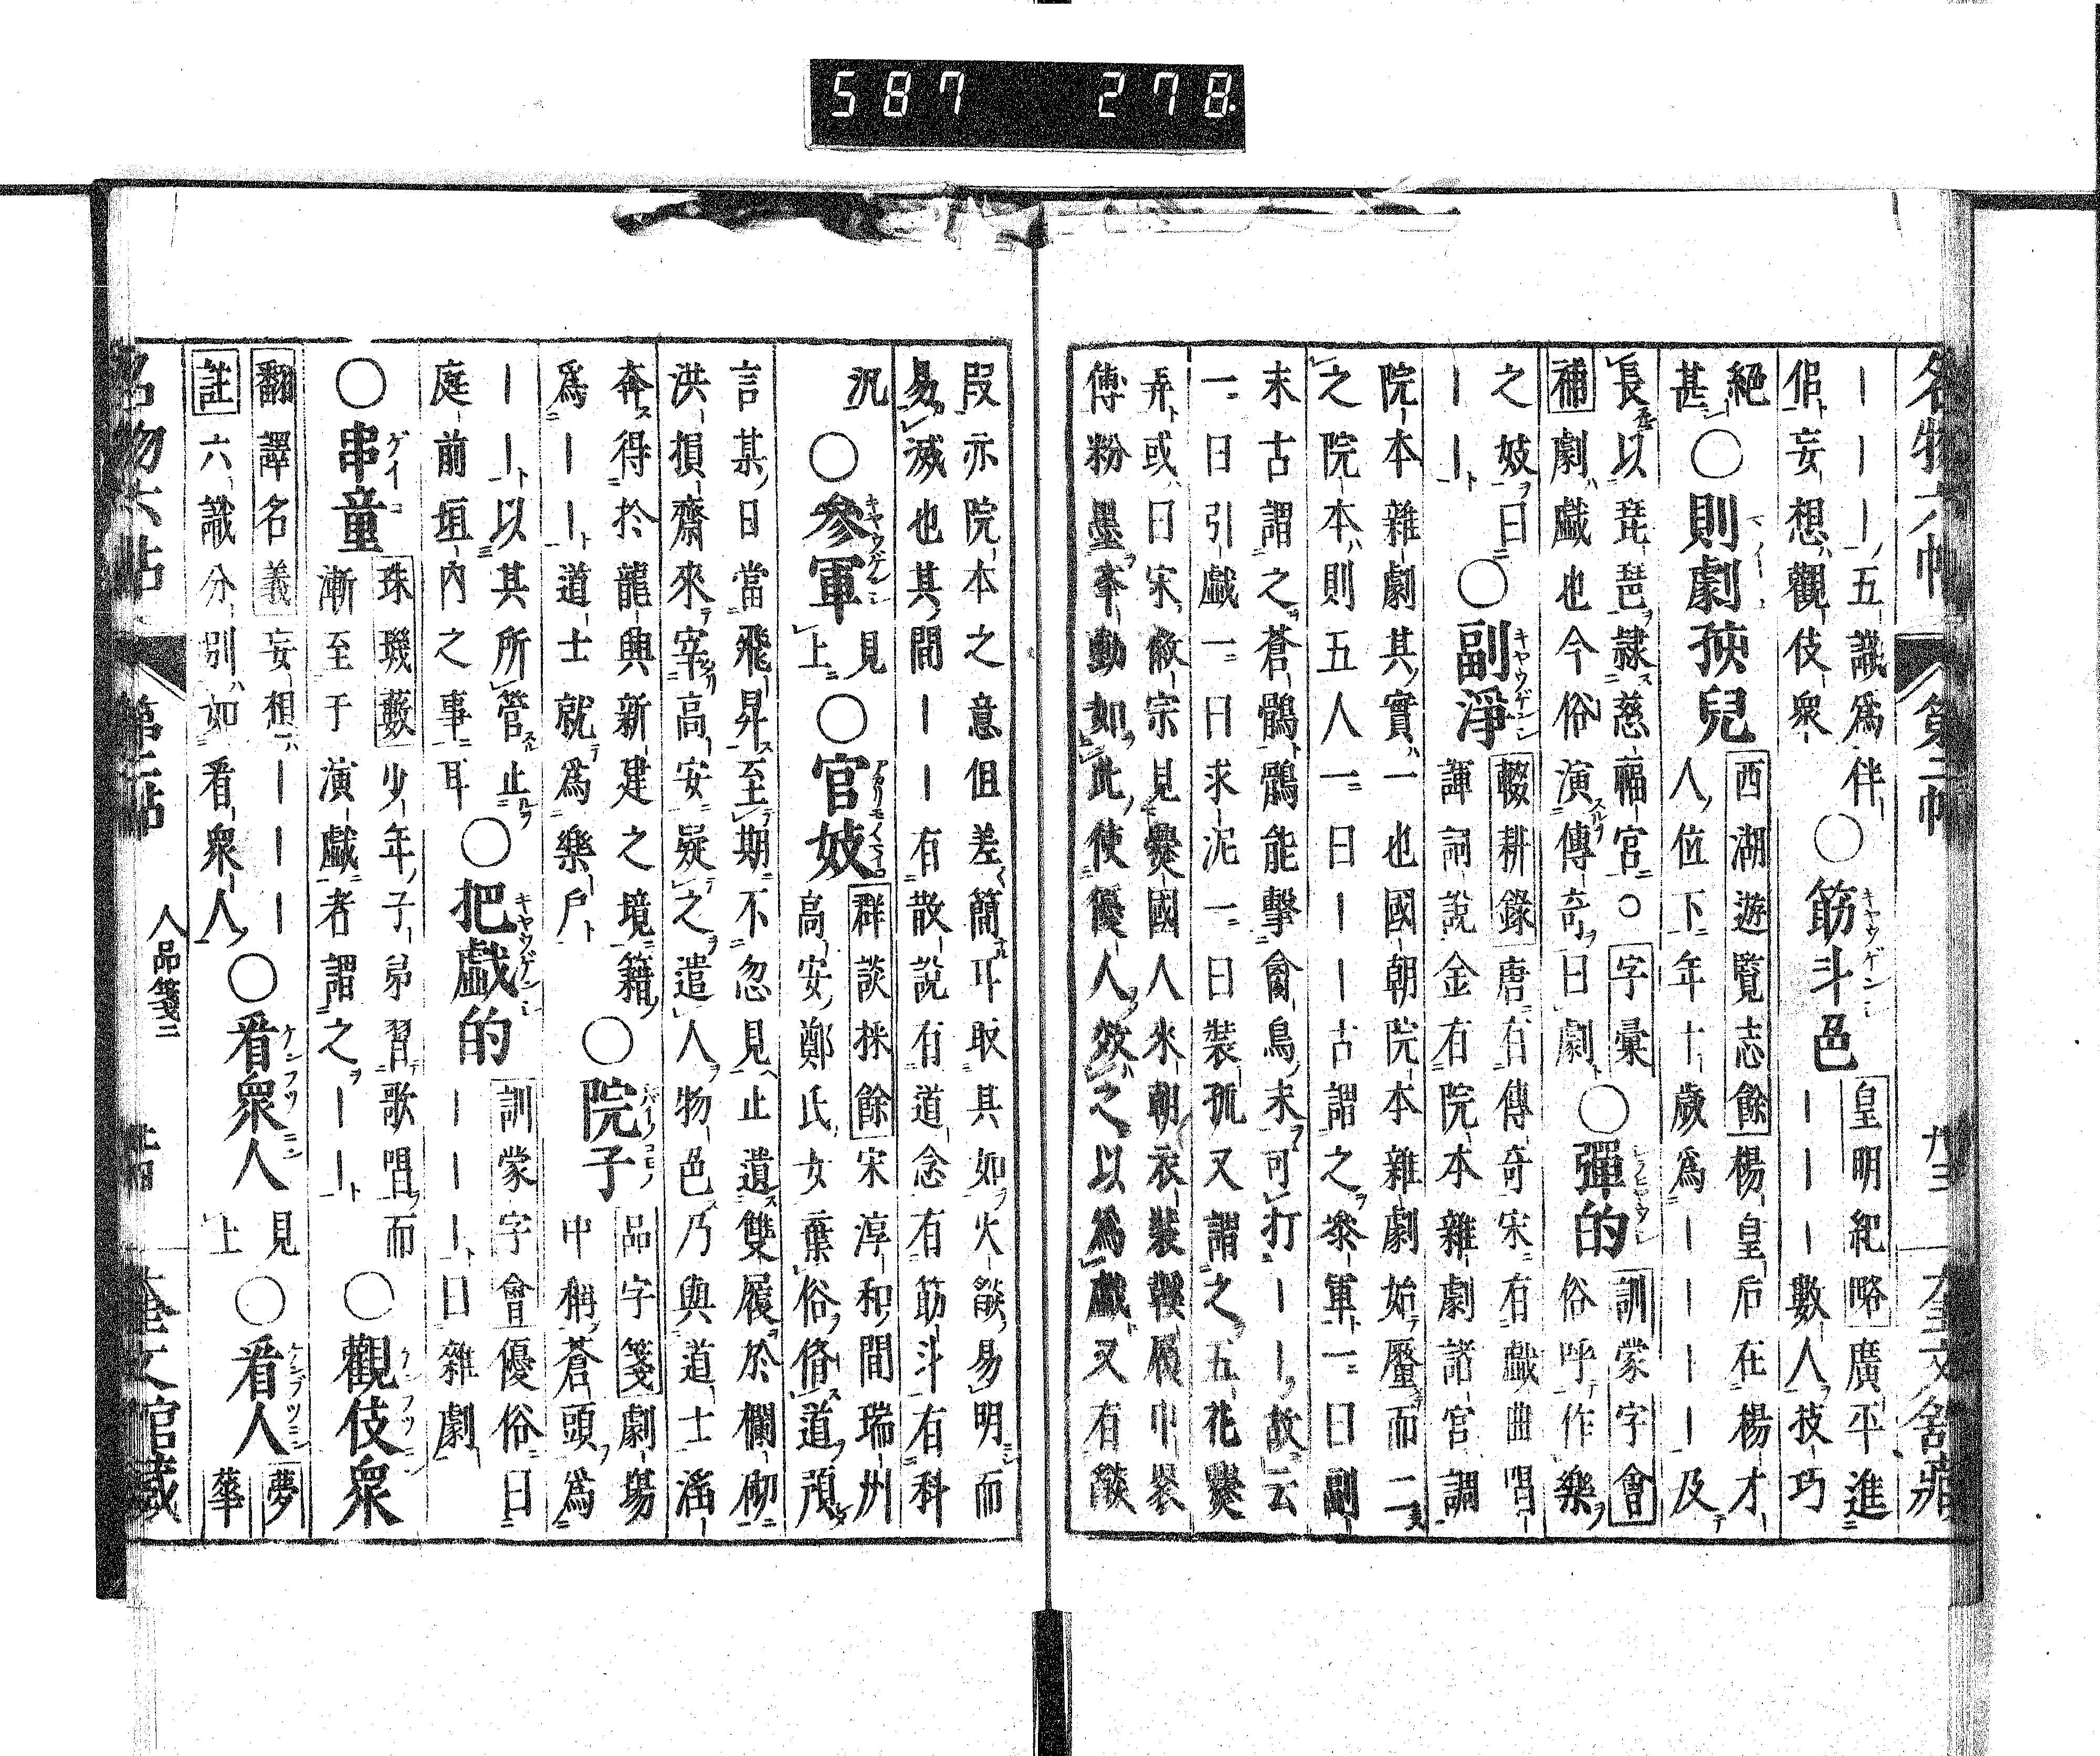 587 278
名物六帖 第二帖 九十三 奎文舘藏
｜｜｜｜五識爲伴
侶妄想觀伎衆
○筯斗色
皇明紀略廣平進
｜｜｜數人技巧
絕
甚
○則劇孩兒
西湖遊覧志餘楊皇后在楊才
人位下年十歲爲｜｜｜｜及
長以琵琶隷慈福宫○字彙
補劇戯也今俗演傳奇曰劇
○彈的
訓蒙字會
俗呼作樂
之妓曰
｜｜
○副淨
輟耕錄唐有傳奇宋有戯曲唱
諢詞說金有院本雜劇諸宫調
院本雜劇其實一也國朝院本雜劇始釐而二
之院本則五人一曰｜｜古謂之參軍一曰副
末古謂之蒼鶻鶻能擊禽鳥末可打｜｜故云
一曰引戯一曰末泥一曰裝孤又謂之五花爨
弄或曰宋徽宗見爨國人來朝衣裝鞵履巾裹
傅粉墨舉動如此使優人效之以爲戯又有燄
段亦院本之意但差簡耳取其如火燄易明而
易滅也其間｜｜有散說有道念有筯斗有科
汎
○參軍
見
上
○官妓
群談採餘宋淳和間瑞州
高安鄭氏女棄俗脩道預
言某日當飛昇至期不忽見止遺雙履於欄砌
洪損齋來宰高安疑之遣人物色乃與道士滛
奔得於龍興新建之境籍
爲｜｜道士就爲樂戶
○院子
品字箋劇場
中稱蒼頭爲
｜｜以其所管止
庭前垣内之事耳
○把戯的
訓蒙字會優俗曰
｜｜｜曰雜劇
○串童
珠璣藪少年子弟習歌唱而
漸至于演戯者謂之｜｜
○觀伎衆
翻譯名義妄想｜｜｜
註六識分別如看衆人
○看衆人
見
上
○看人
夢
華
名物六帖 第二帖 人品箋二 奎文舘藏